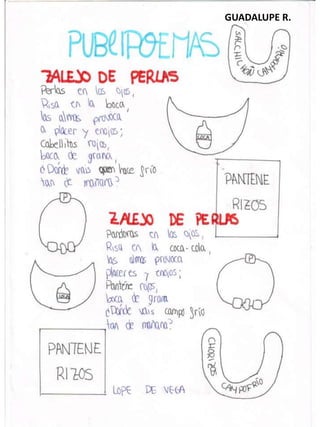 GUADALUPE R.
PUBLIPOEMAS
SALCHICHÓN CAMPOFRÍO
ZALEJO DE PERLAS
Perlas en los ojos,
Risa en la boca,
las almas provoca
a placer y enojos;
Cabellitos rojos,
boca de grana,
¿Dónde vais que hace frío
tan de mañana?
LOCA
PANTENE
RIZOS
P
ZALEJO DE PERLAS
Pandoras en los ojos,
Risa en la coca-cola,
las almas provoca
placeres y enojos;
Pantene rojos,
boca de grana
¿Dónde vais campo frío
tan de mañana?
P
LOCA
PANTENE
RIZOS
CHORIZOS CAMPOFRÍO
LOPE DE VEGA